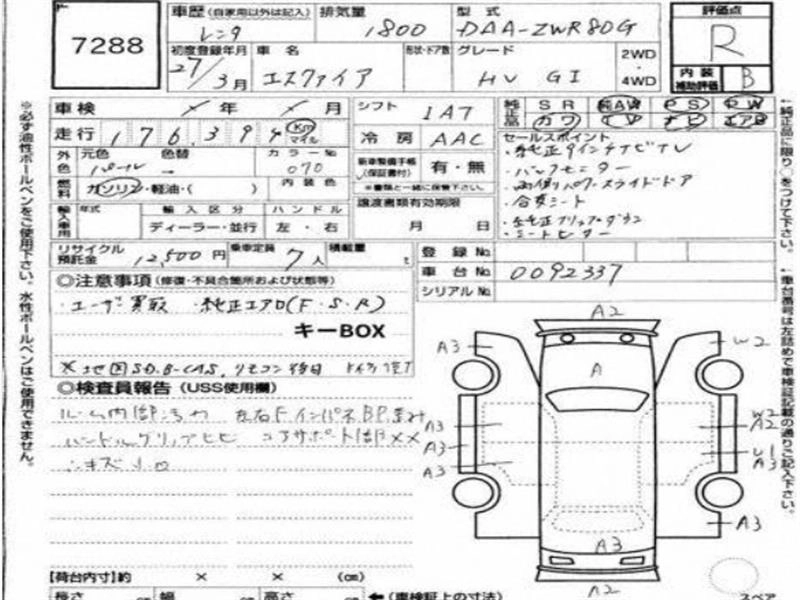 7288
車歴 (自家用以外は記入) 排気量 型式 評価点
レンタ 1800 DAA-ZWR80G R
初度登録年月 車名 形状・ドア数 グレード 2WD・4WD 内装補助評価 B
27/3月 エスクァイア HV GI
車検 年 月 シフト IAT 純正品 SR AW PS PW
走行 176,399 km マイル 冷房 AAC カワ TV ナビ エアB
外色 元色 色替 カラーNo セールスポイント
パール 070 新車整備手帳(保証書付) 有・無 ・純正9インチナビTV
燃料 ガソリン・軽油・( ) 内装色 ※書類と一緒に保管下さい。 ・バックモニター
・両側パワースライドドア
輸入車用 年式 輸入区分 ハンドル 譲渡書類有効期限 ・合皮シート
ディーラー・並行 左・右 月 日 ・純正フリップダウン
・シートヒーター
リサイクル預託金 12,500円 乗車定員 7人 積載量 t 登録No
車台No 0092337
シリアルNo
◎注意事項(修復・不具合箇所および状態等)
・ユーザー買取 ・純正エアロ(F・S・R)
キーBOX
※地図SD,B-CAS,リモコン後日
◎検査員報告(USS使用欄)
ルーム内部汚れ 左右Fインパネ
コアサポート部××
A2
A3 W2
A
A3 W2
A2
A3 U1
A3 A3
A3
A3
A2
【荷台内寸】約 × × (cm)
長さ cm 幅 cm 高さ cm ←(車検証上の寸法) スペア
※必ず油性ボールペンをご使用下さい。水性ボールペンはご使用できません。
←純正品に限り○をつけて下さい。
←車台番号は左詰めで車検証記載の通りご記入下さい。